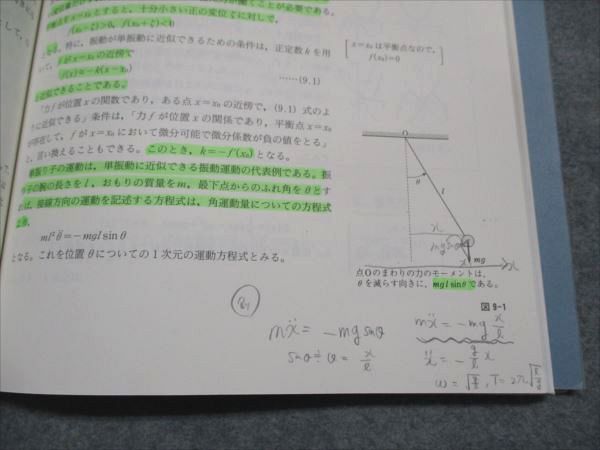 働くことが必要である。
x=x₀とすると，十分小さい正の変位ζに対して，
f(x₀−ζ)>0, f(x₀+ζ)<0
となる。特に，振動が単振動に近似できるための条件は，正定数kを用
いて，fがx=x₀の近傍で
f(x)≒−k(x−x₀) ……(9.1)
と近似できることである。
［x=x₀は平衡点なので，
f(x₀)=0］
「力fが位置xの関数であり，ある点x=x₀の近傍で，(9.1)式のよ
うに近似できる」条件は，「力fが位置xの関係であり，平衡点x=x₀
が存在して，fがx=x₀において微分可能で微分係数が負の値をとる」
と，言い換えることもできる。このとき，k=−f′(x₀)となる。
単振り子の運動は，単振動に近似できる振動運動の代表例である。振
り子の腕の長さをl，おもりの質量をm，最下点からのふれ角をθとす
れば，接線方向の運動を記述する方程式は，角運動量についての方程式
より，
ml²θ̈=−mgl sinθ
となる。これを位置θについての1次元の運動方程式とみる。
O
θ
l
x
mg sinθ
mg
x
点Oのまわりの力のモーメントは，
θを減らす向きに，mgl sinθである。
図9-1
mẍ = −mg sinθ
sinθ ≒ θ = x/l
mẍ = −mg x/l
ẍ = −g/l x
ω = √(g/l), T = 2π√(l/g)